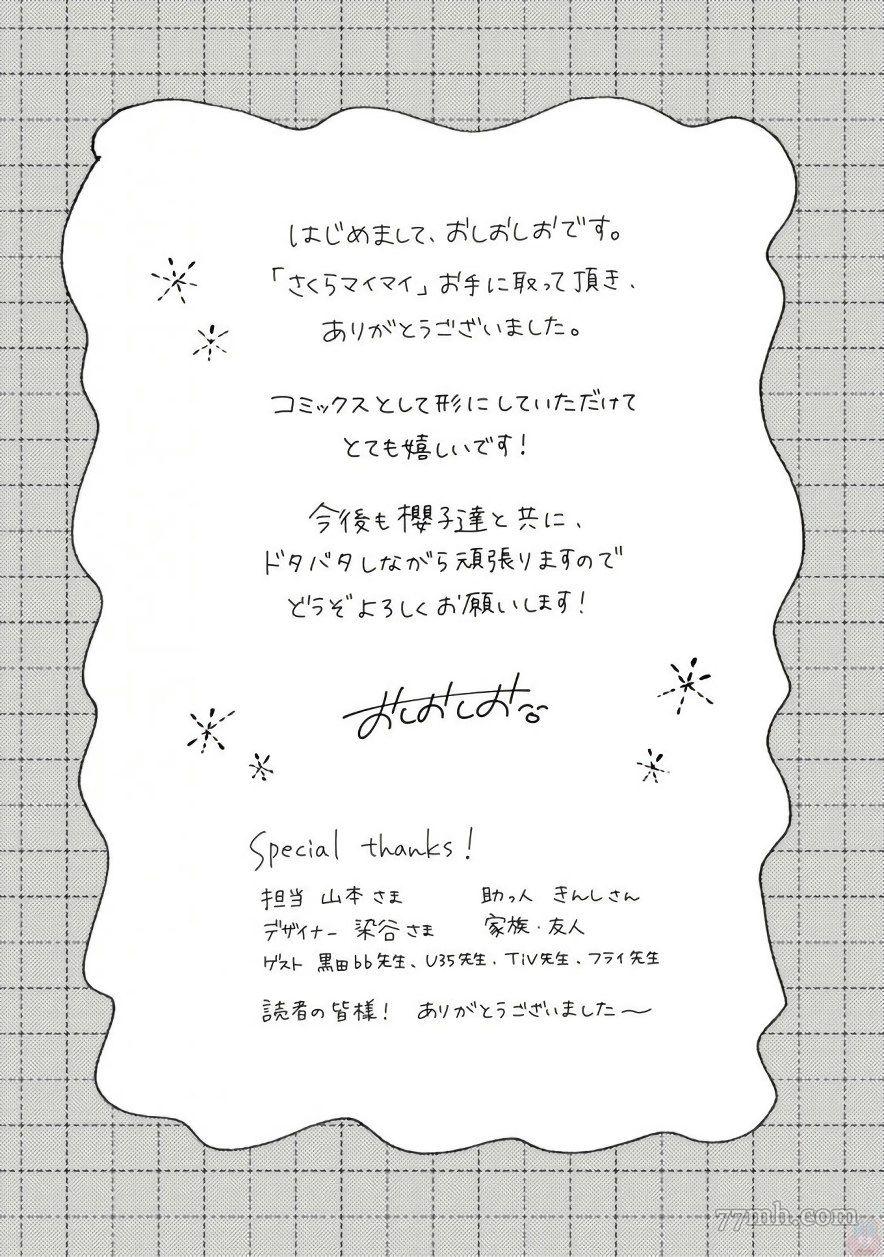 はじめまして、おしおしおです。
「さくらマイマイ」お手に取って頂き、
ありがとうございました。
コミックスとして形にしていただけて
とても嬉しいです！
今後も櫻子達と共に、
ドタバタしながら頑張りますので
どうぞよろしくお願いします！
おしおしお
Special thanks!
担当 山本さま 助っ人 きんしさん
デザイナー 染谷さま 家族・友人
ゲスト 黒田bb先生、U35先生、TiV先生、フライ先生
読者の皆様！ ありがとうございました〜
77mh.com